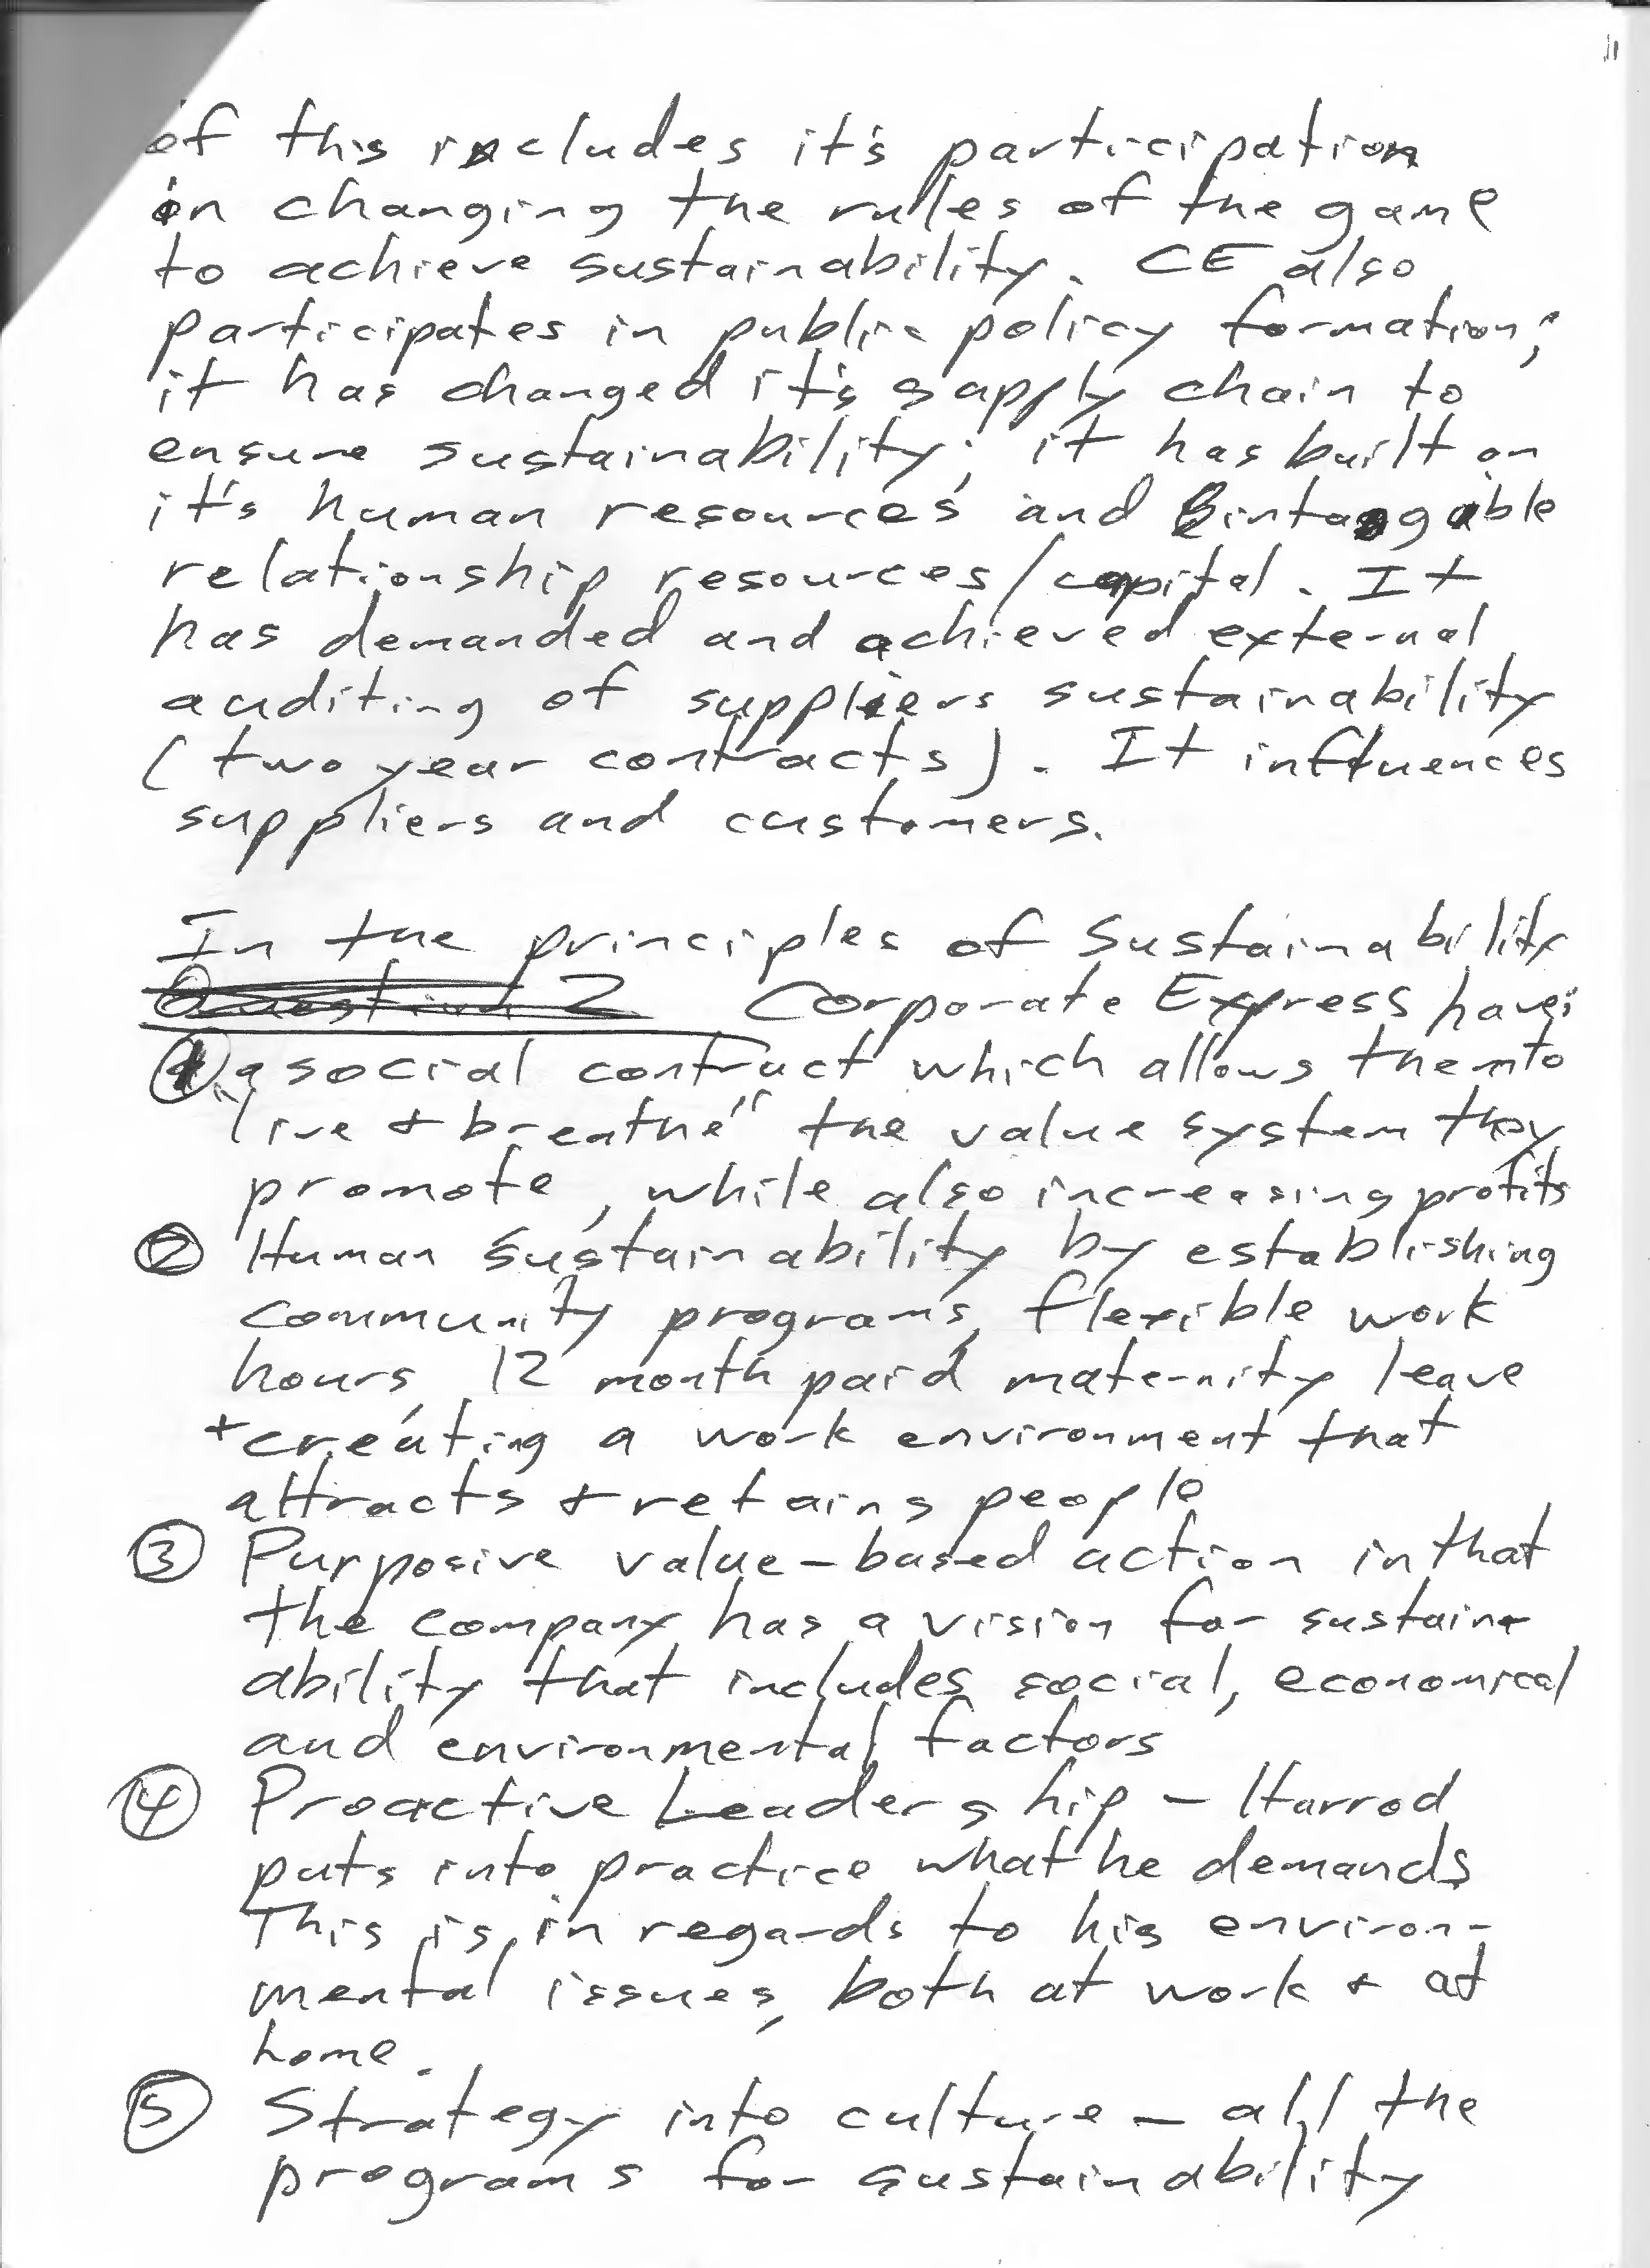 of this includes it's participation
in changing the rules of the game
to achieve sustainability. CE also
participates in public policy formation;
it has changed it's supply chain to
ensure sustainability; it has built on
it's human resources and intangible
relationship resources/capital. It
has demanded and achieved external
auditing of suppliers sustainability
(two year contracts). It influences
suppliers and customers.
In the principles of Sustainability
Question 2 Corporate Express have:
1. a social contract which allows them to
"live + breathe" the value system they
promote, while also increasing profits
2 Human Sustainability by establishing
community programs, flexible work
hours, 12 month paid maternity leave
+ creating a work environment that
attracts + retains people
3 Purposive value-based action in that
the company has a vision for sustain-
ability that includes social, economical
and environmental factors
4 Proactive Leadership - Harrod
puts into practice what he demands
This is in regards to his environ-
mental issues, both at work + at
home.
5 Strategy into culture - all the
programs for sustainability